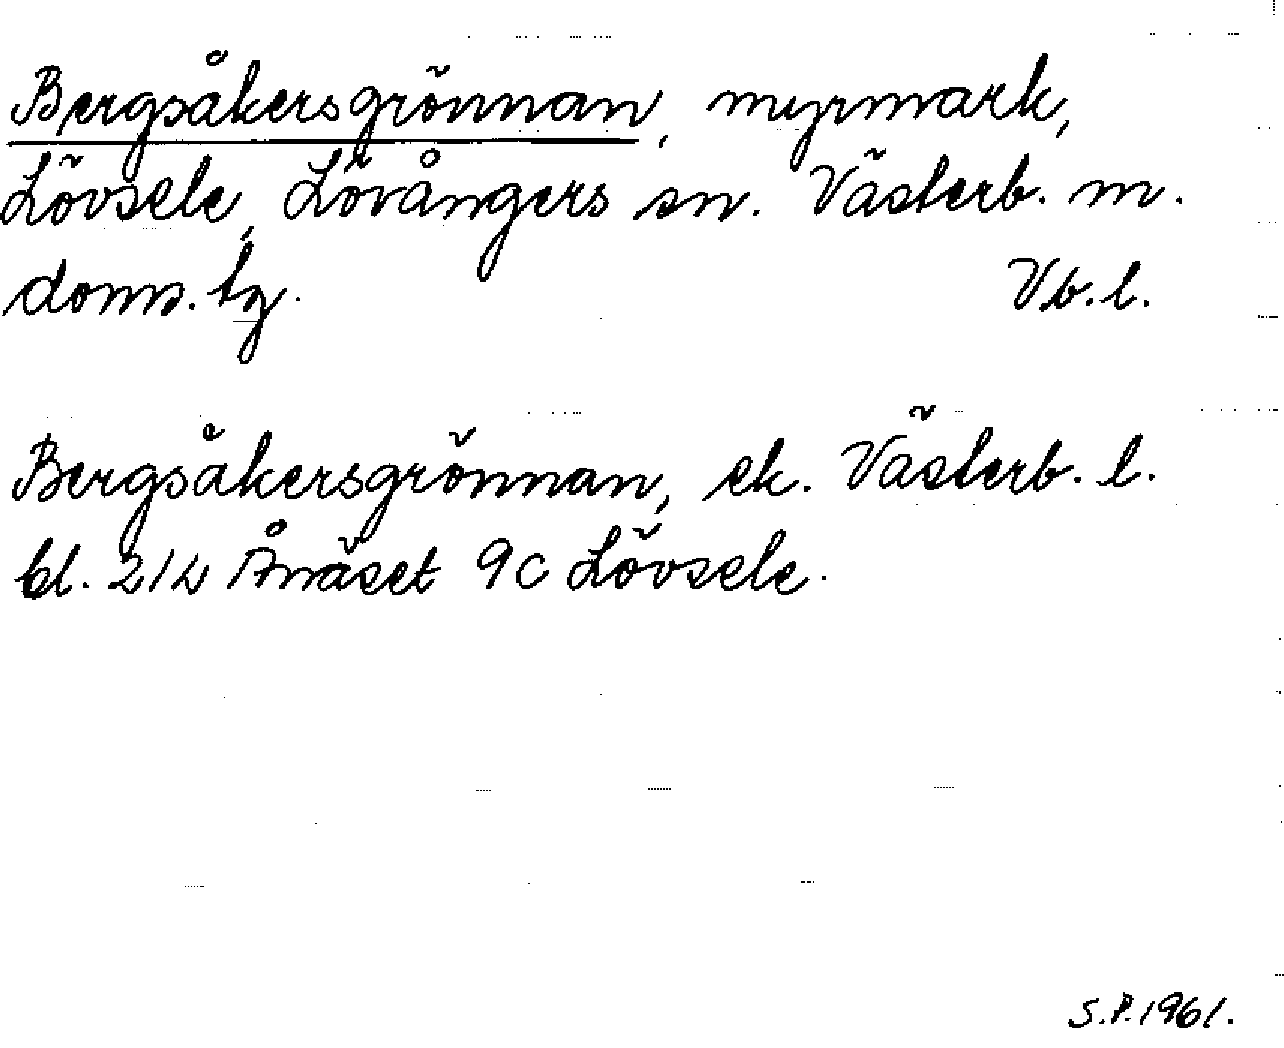 Bergsåkersgrönnan, myrmark,
Lövsele, Lövångers sn. Västerb. m.
doms. tg. Vb. l.
Bergsåkersgrönnan, ek. Västerb. l.
bl. 21L Ånäset 9c Lövsele.
S.P. 1961.